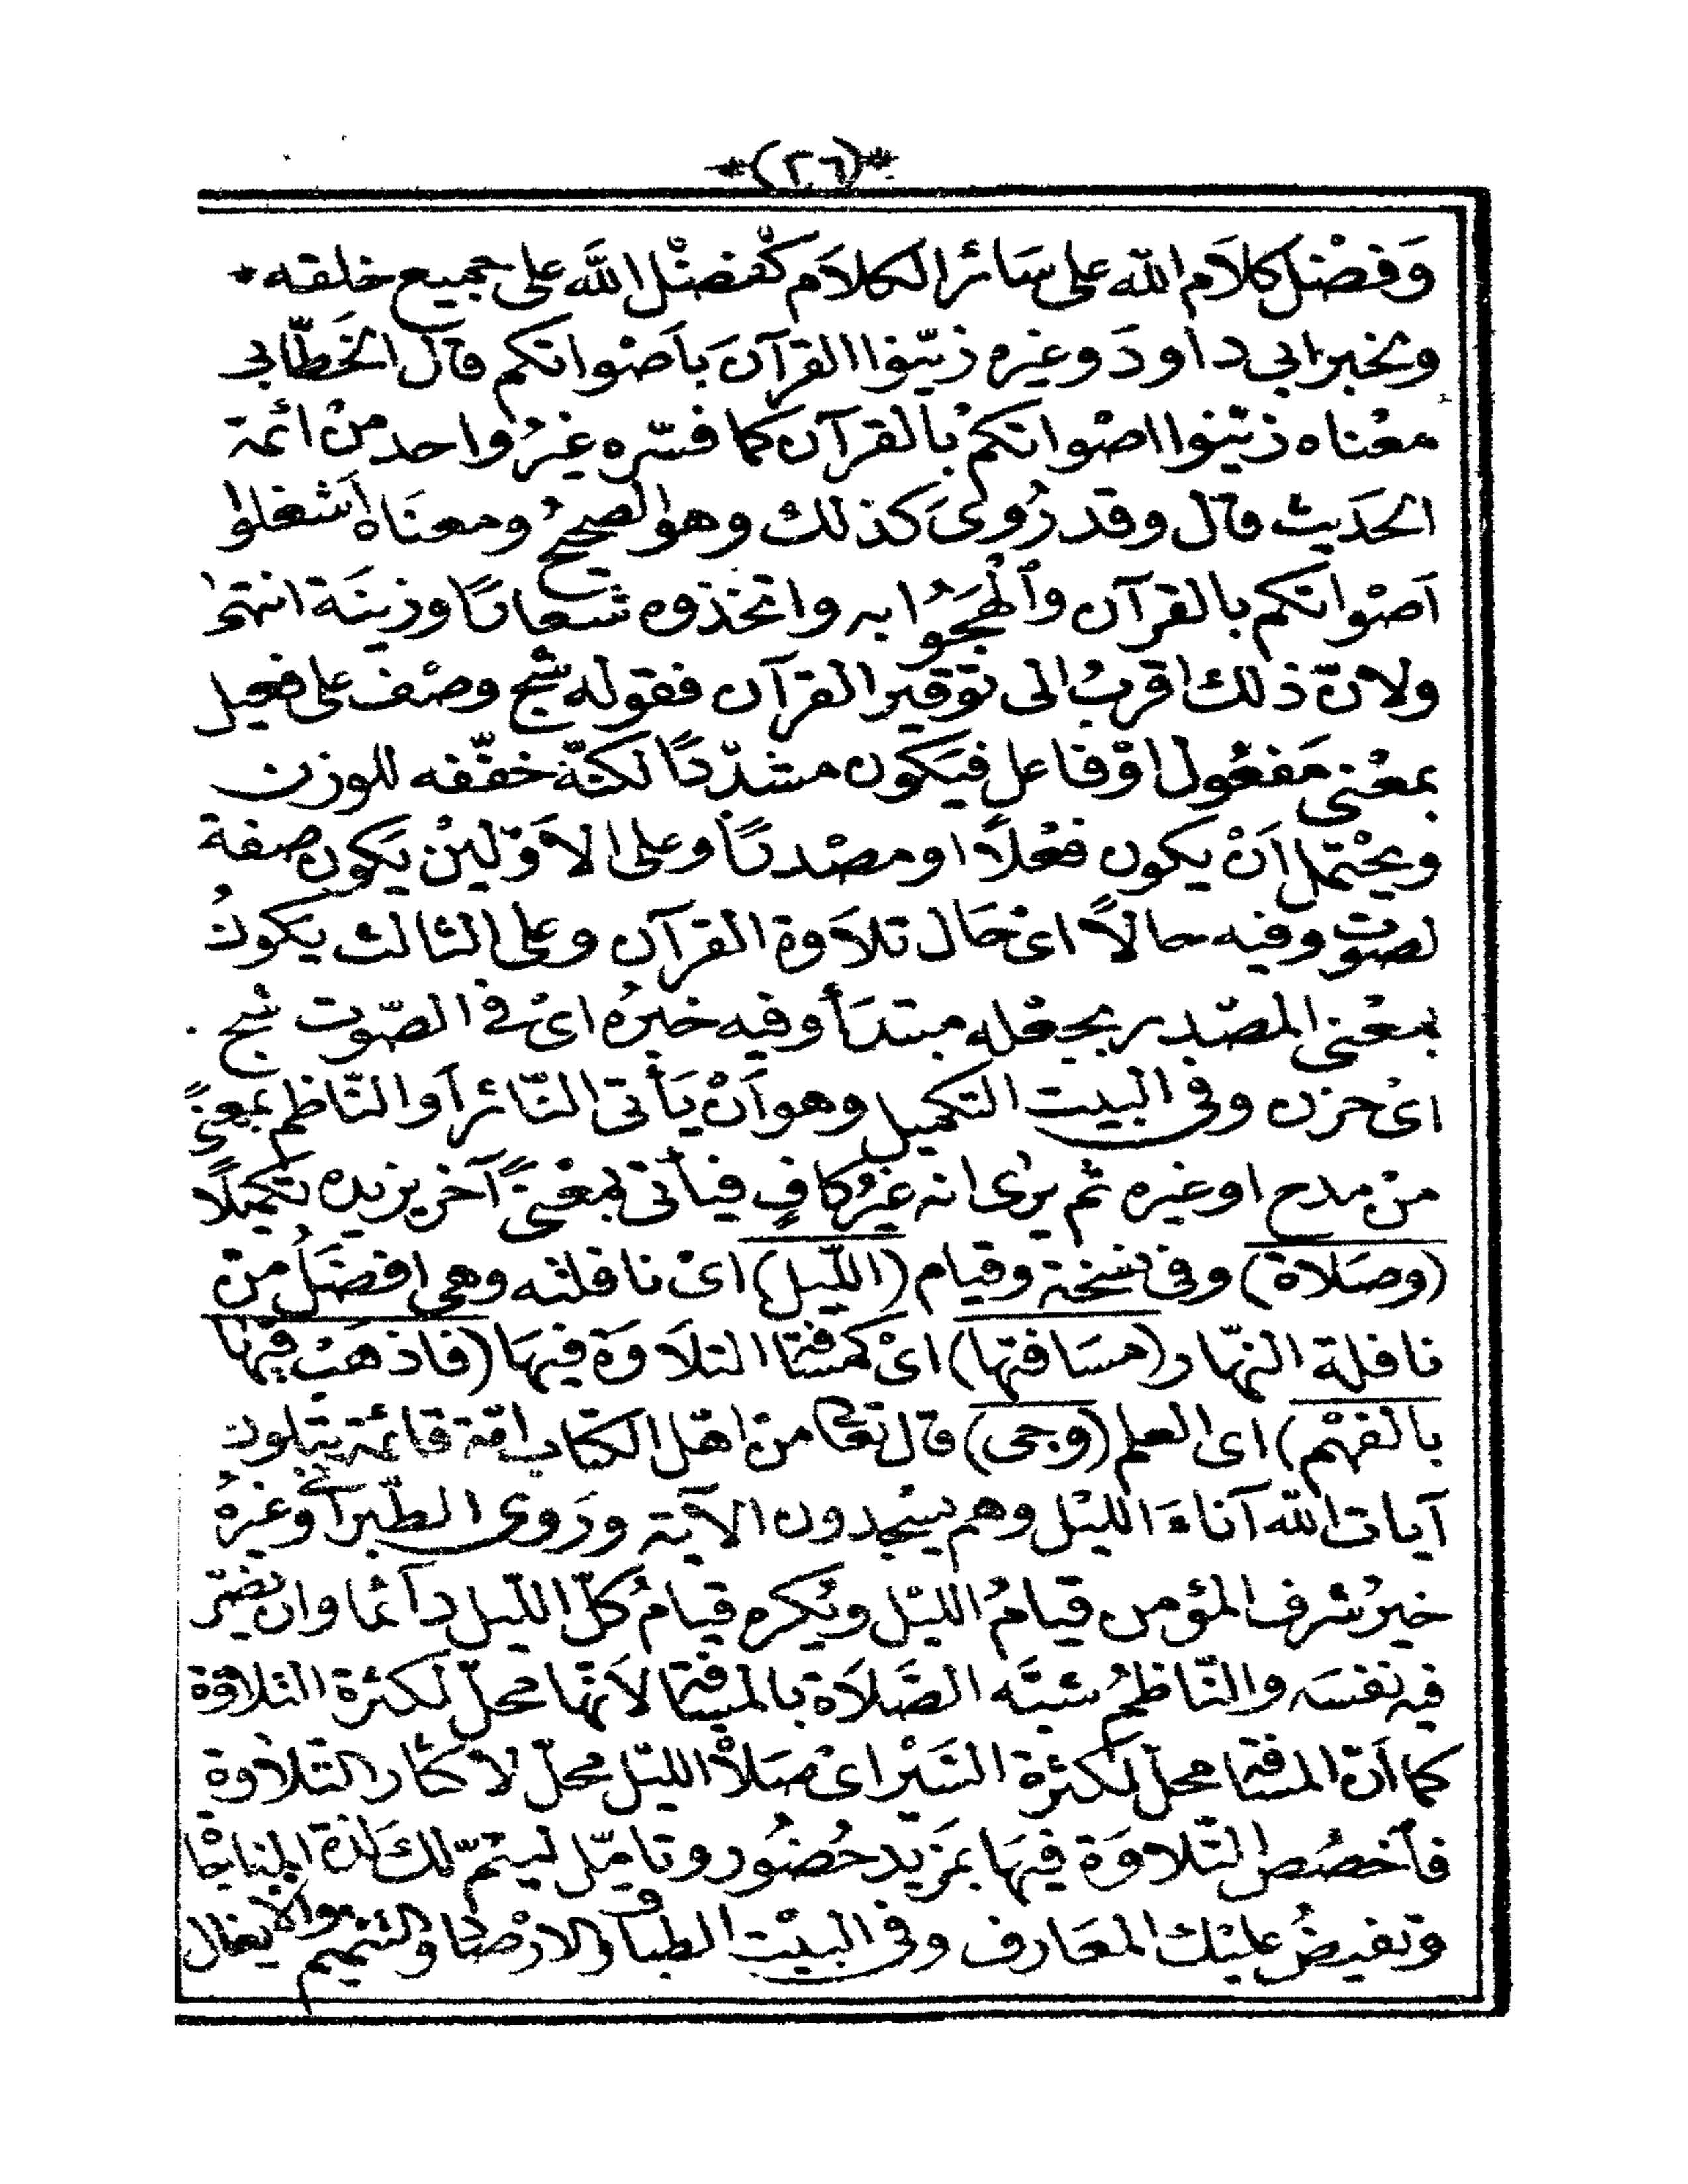 *(٢٦)*
وَفضْل كلاَم الله على سَائر الكلاَم كفضْل الله على جميع خلقه *
وبخبر ابى داودَ وغيره زيّنوا القرآنَ بأَصْواتكم قال الخَطّابى
معْناه زيّنوا اصْواتكمْ بالقرآن كما فسّره غيرُ واحد منْ ائمة
الحَديث قال وقد رُوىَ كذلك وهو الصحيحُ ومعنَاه أَشغلوا
اَصْواتكم بالقرآن وٱلْهَجُوا به واتخذوه شعارًا وزينَة انتهى
ولانّ ذلك اقربُ الى توقير القرآن فقوله شج وصْف على فعيل
بمعْنى مَفعُول اوْ فاعل فيَكون مشدّدًا لكنّه خفّفه للوزن
ويحْتمل اَنْ يكون فعْلاً او مصْدرًا وعلى الاَوّليْن يَكون صفة
لصوت وفيه حالاً اىْ حَال تلاَوة القرآن وعلى الثالث يَكونُ
بمعْنى المصْدر بجعْله مبتدَأ وفيه خبرُه اىْ فى الصّوت شج
اىْ حزن وفى البيت التكميل وهو اَنْ يَأتى النّاثر اَو النّاظم بمعنىً
منْ مدح او غيره ثم يرى انه غيرُ كافٍ فيأتى بمعْنىً آخر يزيده تكميلاً
(وصَلاة) وفى نسْخة وقيام (اللّيل) اىْ نافلته وهى افضَلُ منْ
نافلة النهّار (مسَافتها) اىْ كمسافتها التلاَوَة فيهَا (فاذهَبْ فيهَا
بالفهْم) اى العلم (وجى) قال تعالى منْ اهْل الكتاب امّة قائمة يتلونَ
آيات الله آناءَ الليْل وهم يسْجدون الآية ورَوى الطّبرانى وغيرُه
خبرُ شرف المؤمن قيامُ الليْل ويُكره قيامُ كلّ اللّيل دآئما وان لم يضرّ
فيه نفسَه والنّاظمُ شبّه الصَّلاَة بالمسافة لاَنّها محلّ لكثرة التلاوة
كما اَنّ المسافة محلّ لكثْرة السَّيْر اىْ صَلاةُ الليْل محلّ لاكثار التّلاَوة
فاَخصُص التّلاوَة فيهَا بمزيد حُضُور وتأمّل ليتمّ لكَ لذة المناجاة
وتفيضُ عليْك المعَارف وفى البيْت الطباق والارْصاد والتتميم والايغال